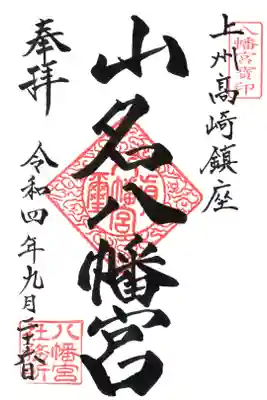 八幡宮寶印
上州高崎鎮座
山名八幡宮
奉拝
令和四年九月二十六日
八幡宮
社務所